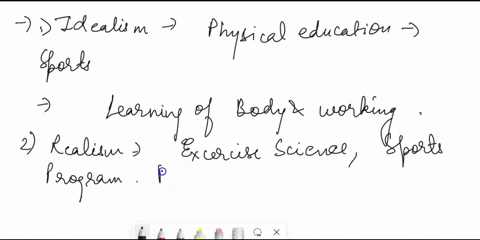 → 1) Idealism → Physical education →
Sports
→ Learning of Body & working .
2) Realism → Excercise Science, Sports
Program . P